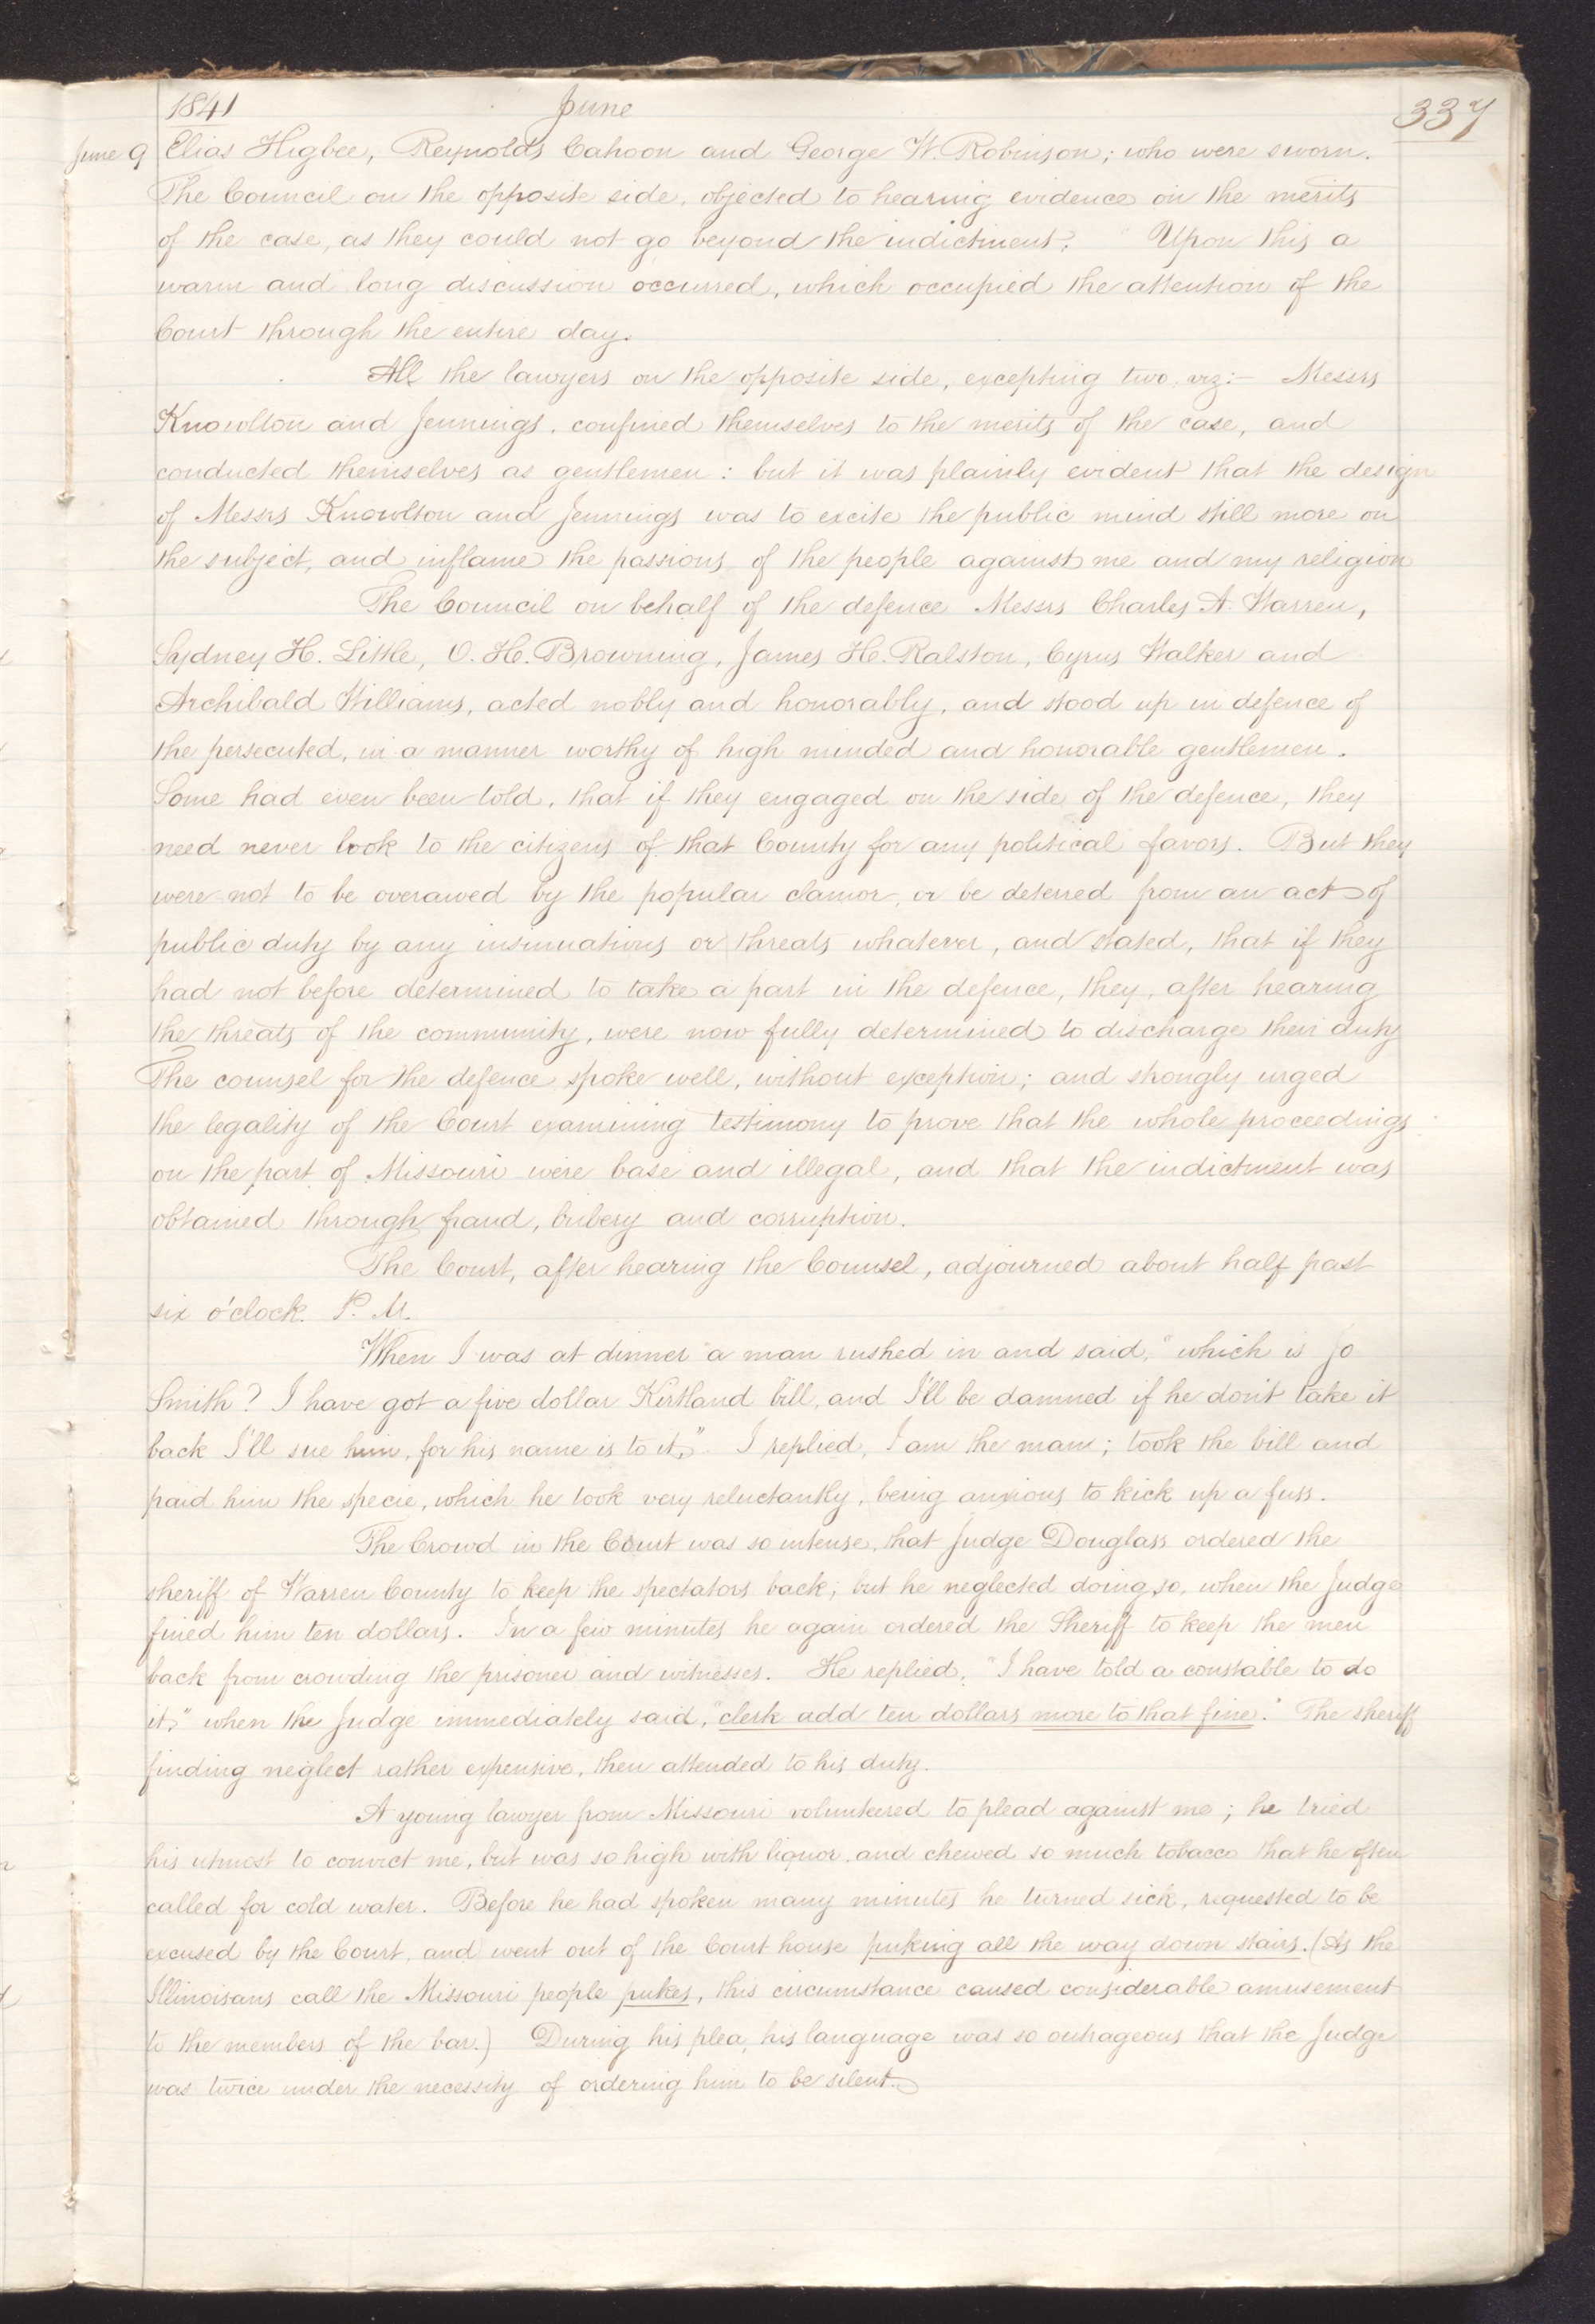 1841 June 337
June 9 Elias Higbee, Reynolds Cahoon and George W. Robinson; who were sworn.
The Council on the opposite side, objected to hearing evidence on the merits
of the case, as they could not go beyond the indictment. Upon this a
warm and long discussion occurred, which occupied the attention of the
Court through the entire day.
All the lawyers on the opposite side, excepting two, viz:— Messrs
Knowlton and Jennings, confined themselves to the merits of the case, and
conducted themselves as gentlemen: but it was plainly evident that the design
of Messrs Knowlton and Jennings was to excite the public mind still more on
the subject, and inflame the passions of the people against me and my religion
The Council on behalf of the defence Messrs Charles A. Warren,
Sydney H. Little, O. H. Browning, James H. Ralston, Cyrus Walker and
Archibald Williams, acted nobly and honorably, and stood up in defence of
the persecuted, in a manner worthy of high minded and honorable gentlemen.
Some had even been told, that if they engaged on the side of the defence, they
need never look to the citizens of that County for any political favors. But they
were not to be overawed by the popular clamor, or be deterred from an act of
public duty by any insinuations or threats whatever, and stated, that if they
had not before determined to take a part in the defence, they, after hearing
the threats of the community, were now fully determined to discharge their duty
The counsel for the defence spoke well, without exception; and strongly urged
the legality of the Court examining testimony to prove that the whole proceedings
on the part of Missouri were base and illegal, and that the indictment was
obtained through fraud, bribery and corruption.
The Court, after hearing the Counsel, adjourned about half past
six o'clock. P. M.
When I was at dinner a man rushed in and said, "which is Jo
Smith? I have got a five dollar Kirtland bill, and I'll be damned if he don't take it
back I'll sue him, for his name is to it." I replied, I am the man; took the bill and
paid him the specie, which he took very reluctantly, being anxious to kick up a fuss.
The Crowd in the Court was so intense, that Judge Douglass ordered the
sheriff of Warren County to keep the spectators back; but he neglected doing so, when the Judge
fined him ten dollars. In a few minutes he again ordered the Sheriff to keep the men
back from crowding the prisoner and witnesses. He replied, "I have told a constable to do
it," when the Judge immediately said, "clerk add ten dollars more to that fine." The sheriff
finding neglect rather expensive, then attended to his duty.
A young lawyer from Missouri volunteered to plead against me; he tried
his utmost to convict me, but was so high with liquor, and chewed so much tobacco that he often
called for cold water. Before he had spoken many minutes he turned sick, requested to be
excused by the Court, and went out of the Court house puking all the way down stairs. (As the
Illinoisans call the Missouri people pukes, this circumstance caused considerable amusement
to the members of the bar.) During his plea, his language was so outrageous that the Judge
was twice under the necessity of ordering him to be silent.